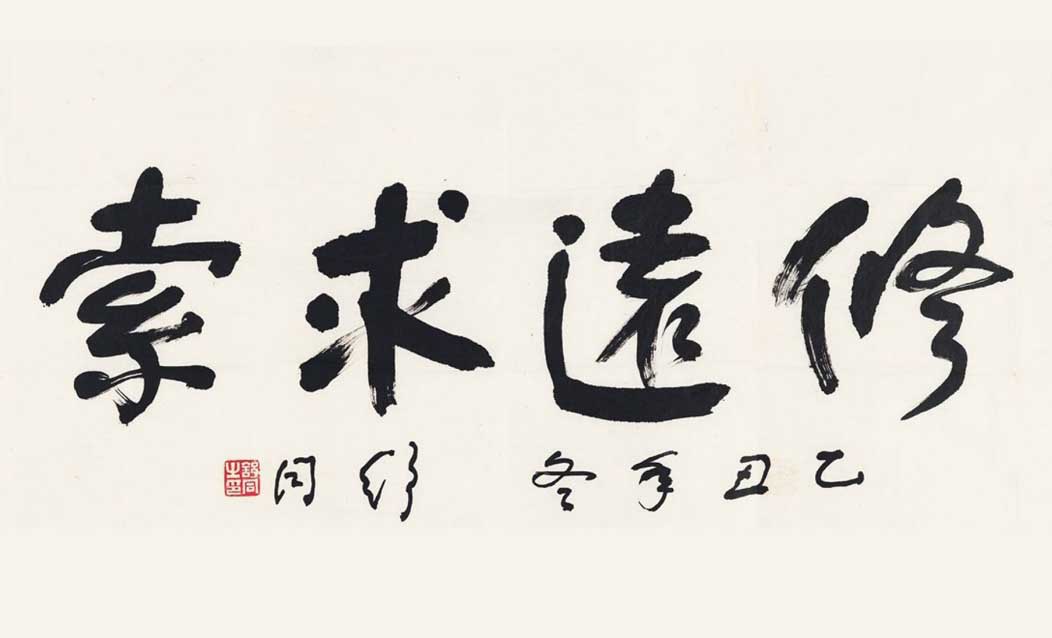 修遠求索
乙丑年冬 舒同
舒同之印